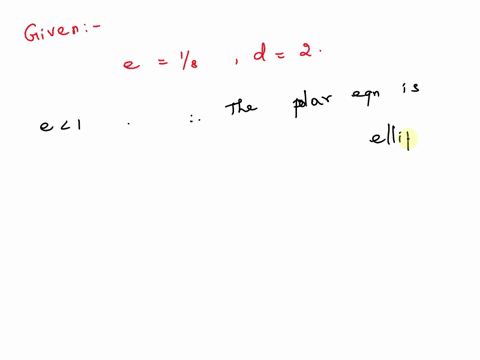 Given:-
e = 1/8 , d = 2.
e < 1 . ∴ The plar eqn is
ellip